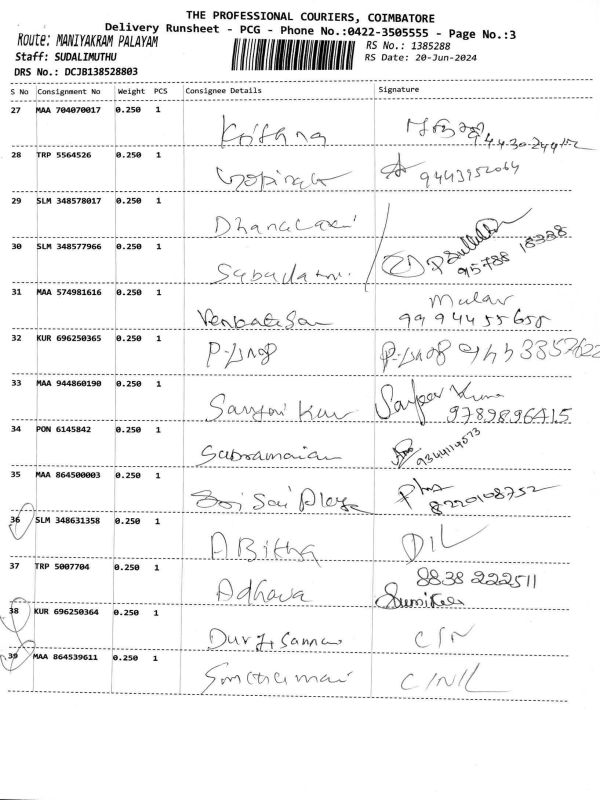 THE PROFESSIONAL COURIERS, COIMBATORE
Delivery Runsheet - PCG - Phone No.:0422-3505555 - Page No.:3
Route: MANIYAKRAM PALAYAM
RS No.: 1385288
Staff: SUDALIMUTHU
RS Date: 20-Jun-2024
DRS No.: DCJB138528803
S No Consignment No Weight PCS Consignee Details Signature
27 MAA 704070017 0.250 1 Krithna
28 TRP 5564526 0.250 1 Gopinath 9443952064
29 SLM 348578017 0.250 1 Dhanalaxmi
30 SLM 348577966 0.250 1 95788 18338
31 MAA 574981616 0.250 1 Venkatesan Malar
9994455655
32 KUR 696250365 0.250 1
33 MAA 944860190 0.250 1 Sanjeev Kuma
9789896415
34 PON 6145842 0.250 1 Subramaian 9344119573
35 MAA 864500003 0.250 1 Sri Sai 8220108752
36 SLM 348631358 0.250 1 ABitha D/L
37 TRP 5007704 0.250 1 Adhava 8838 222511
38 KUR 696250364 0.250 1
39 MAA 864539611 0.250 1